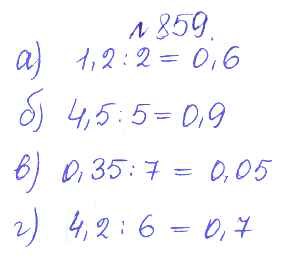 № 859.
а) 1,2 : 2 = 0,6
б) 4,5 : 5 = 0,9
в) 0,35 : 7 = 0,05
г) 4,2 : 6 = 0,7